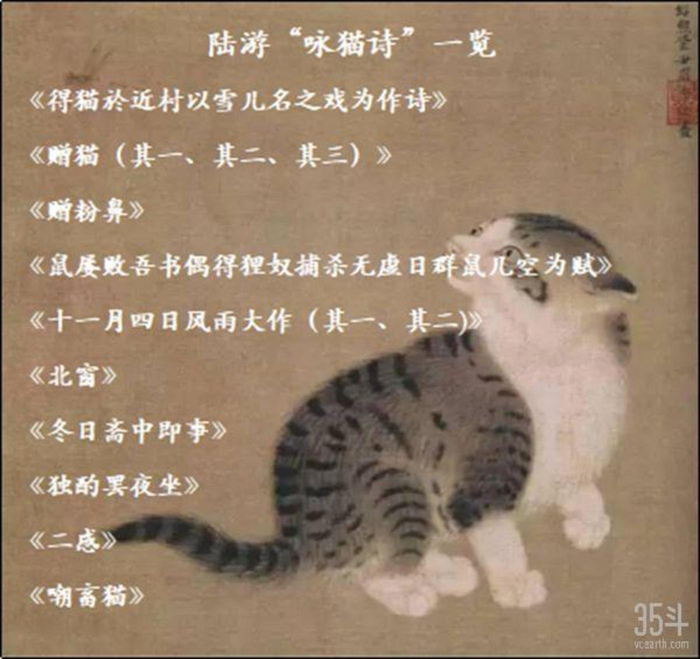 陆游“咏猫诗”一览
《得猫於近村以雪儿名之戏为作诗》
《赠猫（其一、其二、其三）》
《赠粉鼻》
《鼠屡败吾书偶得狸奴捕杀无虚日群鼠几空为赋》
《十一月四日风雨大作（其一、其二)》
《北窗》
《冬日斋中即事》
《独酌罢夜坐》
《二感》
《嘲畜猫》
35斗
vcearth.com